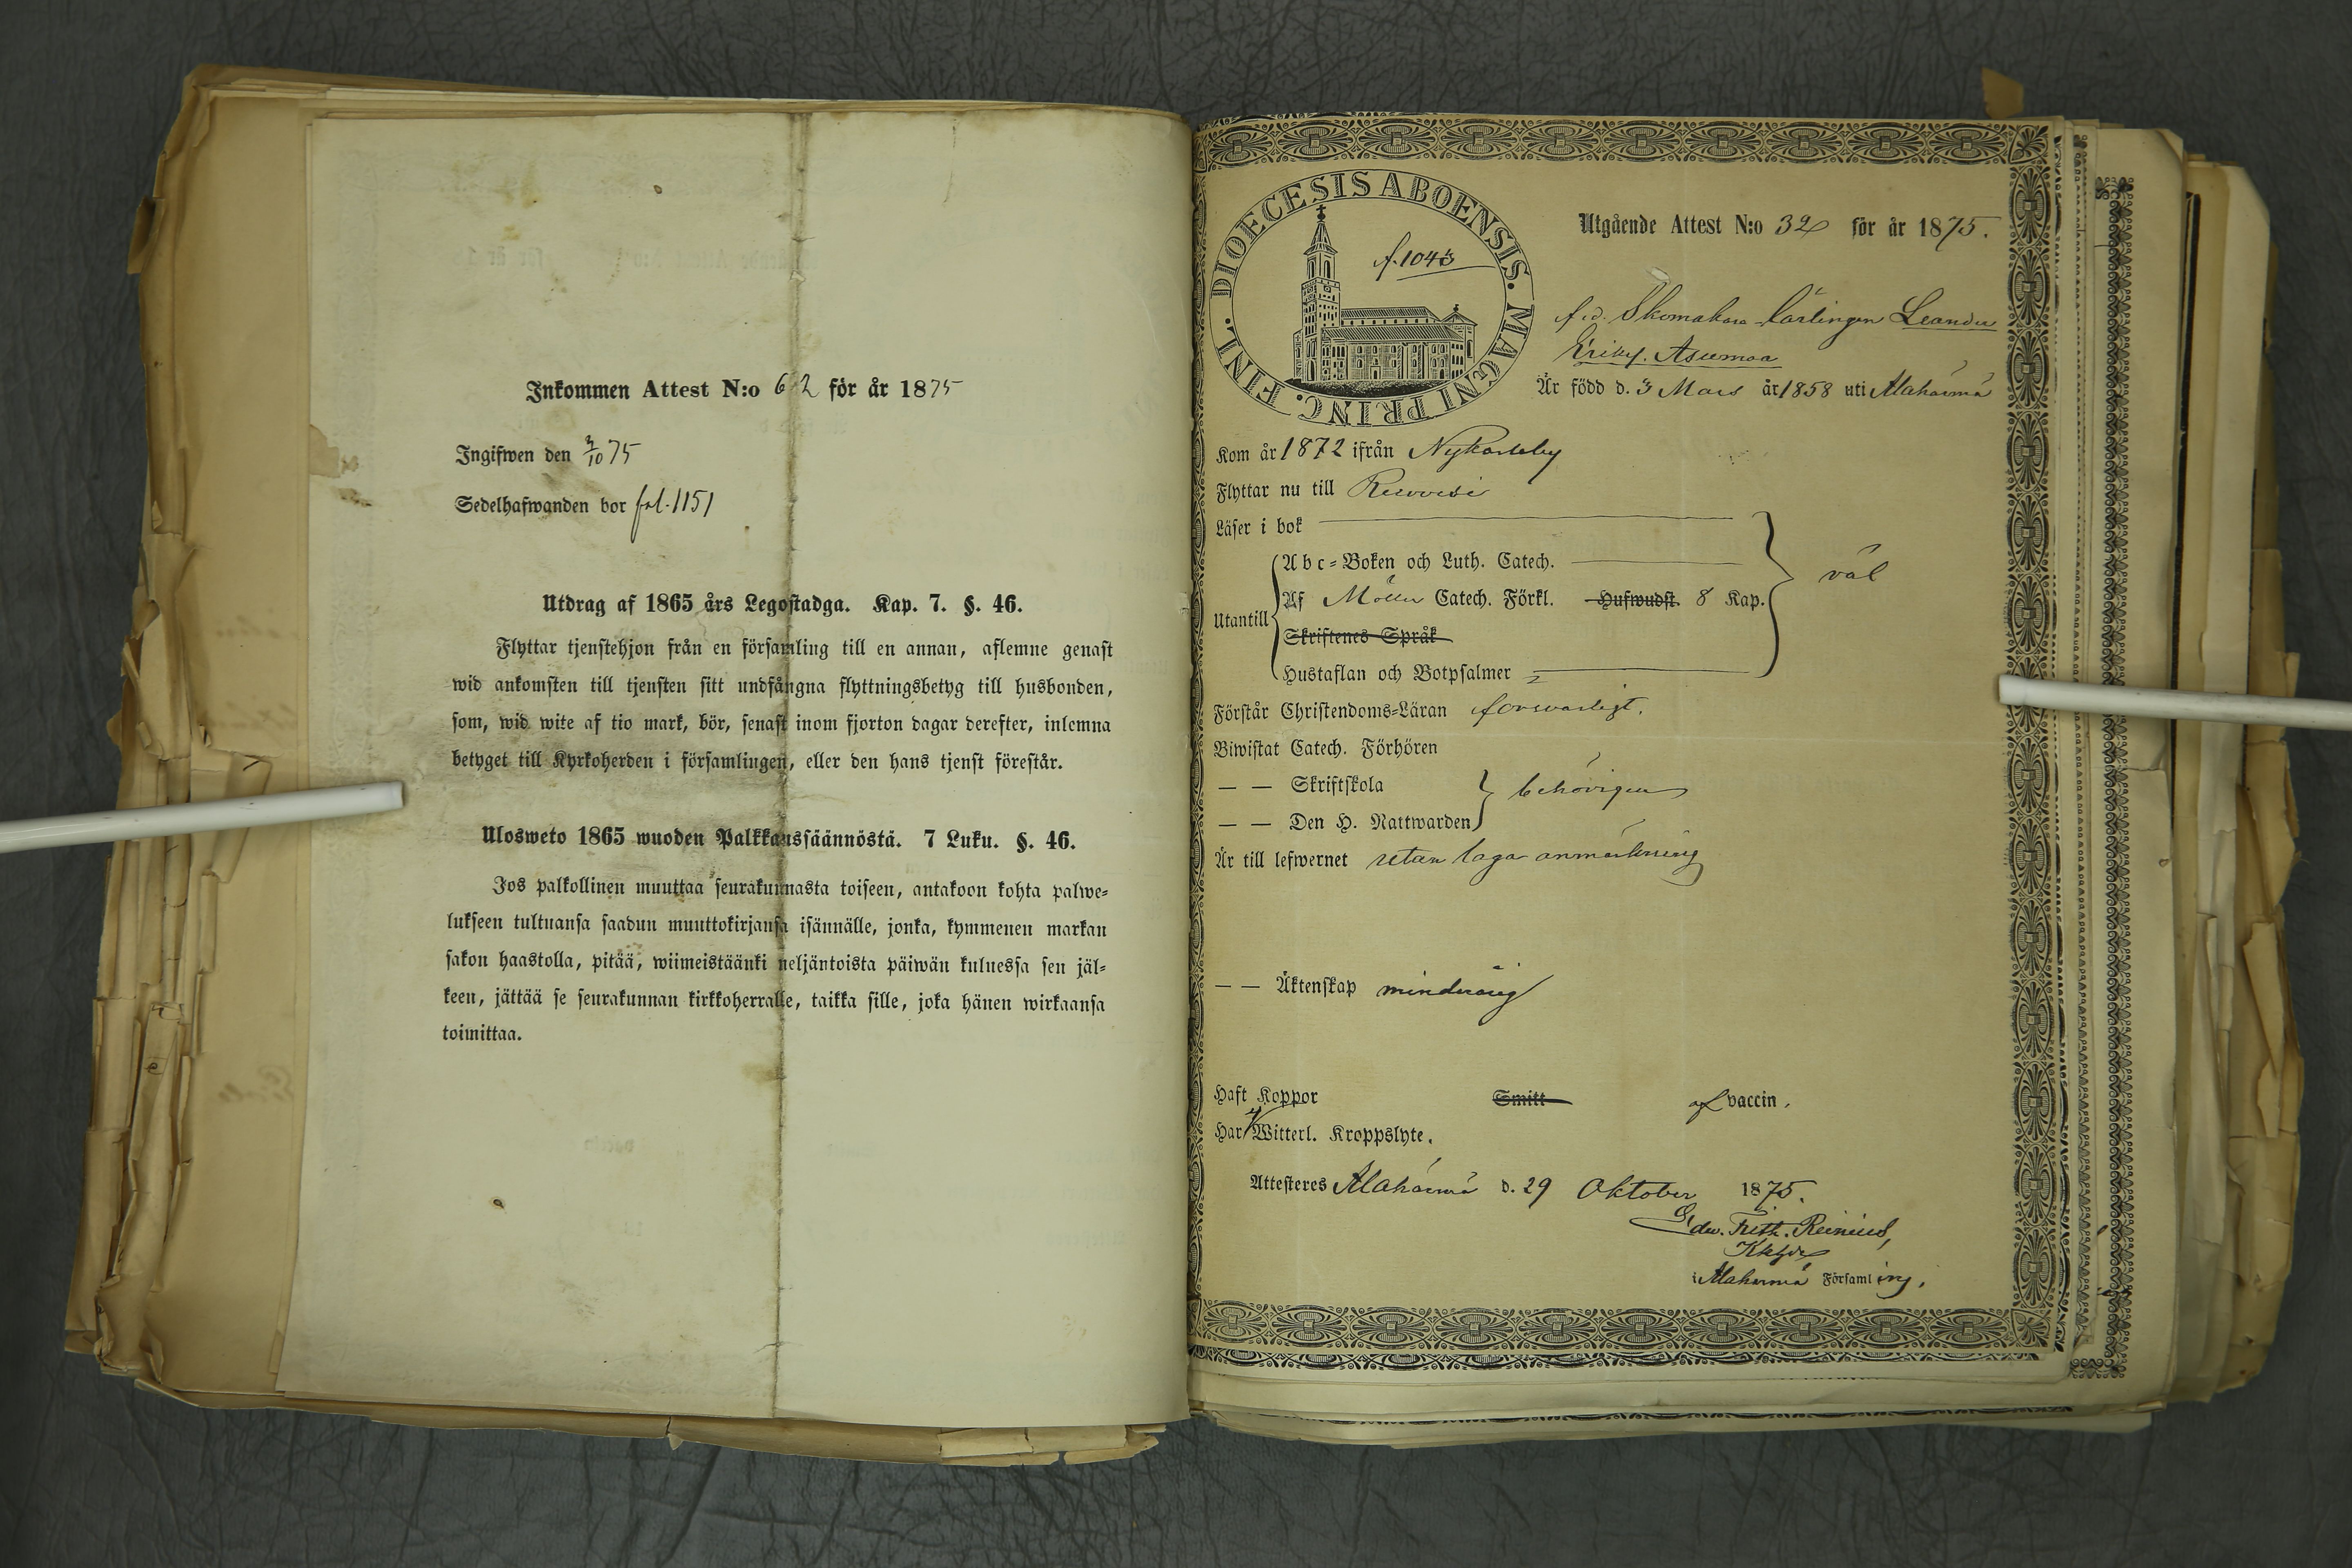 Inkommen Attest N:o 62 för år 1875
Ingifwen den 3/10 75
Sedelhafwanden bor fol. 1151
Utdrag af 1865 års Legostadga. Kap. 7. §. 46.
Flyttar tjenstehjon från en församling till en annan, aflemne genast
wid ankomsten till tjensten sitt undfångna flyttningsbetyg till husbonden,
som, wid wite af tio mark, bör, senast inom fjorton dagar derefter, inlemna
betyget till Kyrkoherden i församlingen, eller den hans tjenst förestår.
Ulosweto 1865 wuoden Palkkaussäännöstä. 7 Luku. §. 46.
Jos palkollinen muuttaa seurakunnasta toiseen, antakoon kohta palwe-
lukseen tultuansa saadun muuttokirjansa isännälle, jonka, kymmenen markan
sakon haastolla, pitää, wiimeistäänki neljäntoista päiwän kuluessa sen jäl-
keen, jättää se seurakunnan kirkkoherralle, taikka sille, joka hänen wirkaansa
toimittaa.
DIOECESIS ABOENSIS. MAGNI PRINC. FINL.
f. 1043
Utgående Attest N:o 32 för år 1875.
f.d. Skomakare Lärlingen Leander
Eriks. Asumaa
Är född d. 3 Mars år 1858 uti Alahärmä
Kom år 1872 ifrån Nykarleby
Flyttar nu till
Läser i bok
Abc-Boken och Luth. Catech.
väl
Utantill
Af Möller Catech. Förkl. Hufwudst. 8 Kap.
Skriftenes Språk
Hustaflan och Botpsalmer
Förstår Christendoms-Läran försvarligt.
Biwistat Catech. Förhören
— — Skriftskola
behörigen
— — Den H. Nattwarden
Är till lefwernet utan laga anmärkning
— — Äktenskap minderårig
Haft Koppor Smitt af vaccin.
Har ej Witterl. Kroppslyte.
Attesteres Alahärmä d. 29 Oktober 1875.
Edw. Frith. Reinius,
Kkhde
i Alahärmä Församling.